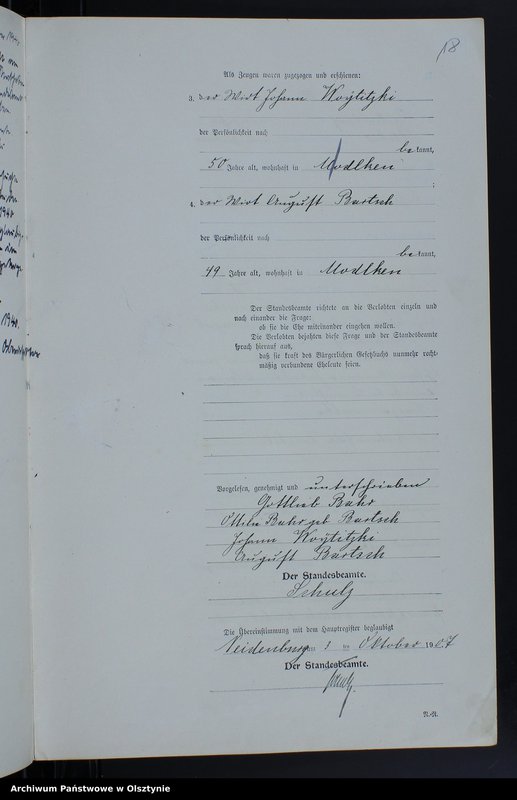 18
Als Zeugen waren zugezogen und erschienen:
3. der Wirt Johann Woÿtitzki
der Persönlichkeit nach
bekannt,
50 Jahre alt, wohnhaft in Modlken
;
4. der Wirt August Bartsch
der Persönlichkeit nach
bekannt,
49 Jahre alt, wohnhaft in Modlken
Der Standesbeamte richtete an die Verlobten einzeln und
nach einander die Frage:
ob sie die Ehe miteinander eingehen wollen.
Die Verlobten bejahten diese Frage und der Standesbeamte
sprach hierauf aus,
daß sie kraft des Bürgerlichen Gesetzbuchs nunmehr recht-
mäßig verbundene Eheleute seien.
Vorgelesen, genehmigt und unterschrieben
Gottlieb Bahr
Bahr geb. Bartsch
Johann Woÿtitzki
August Bartsch
Der Standesbeamte.
Schulz
Die Übereinstimmung mit dem Hauptregister beglaubigt
Neidenburg, am 3 ten Oktober 1907
Der Standesbeamte.
Schulz.
1940.
Archiwum Państwowe w Olsztynie